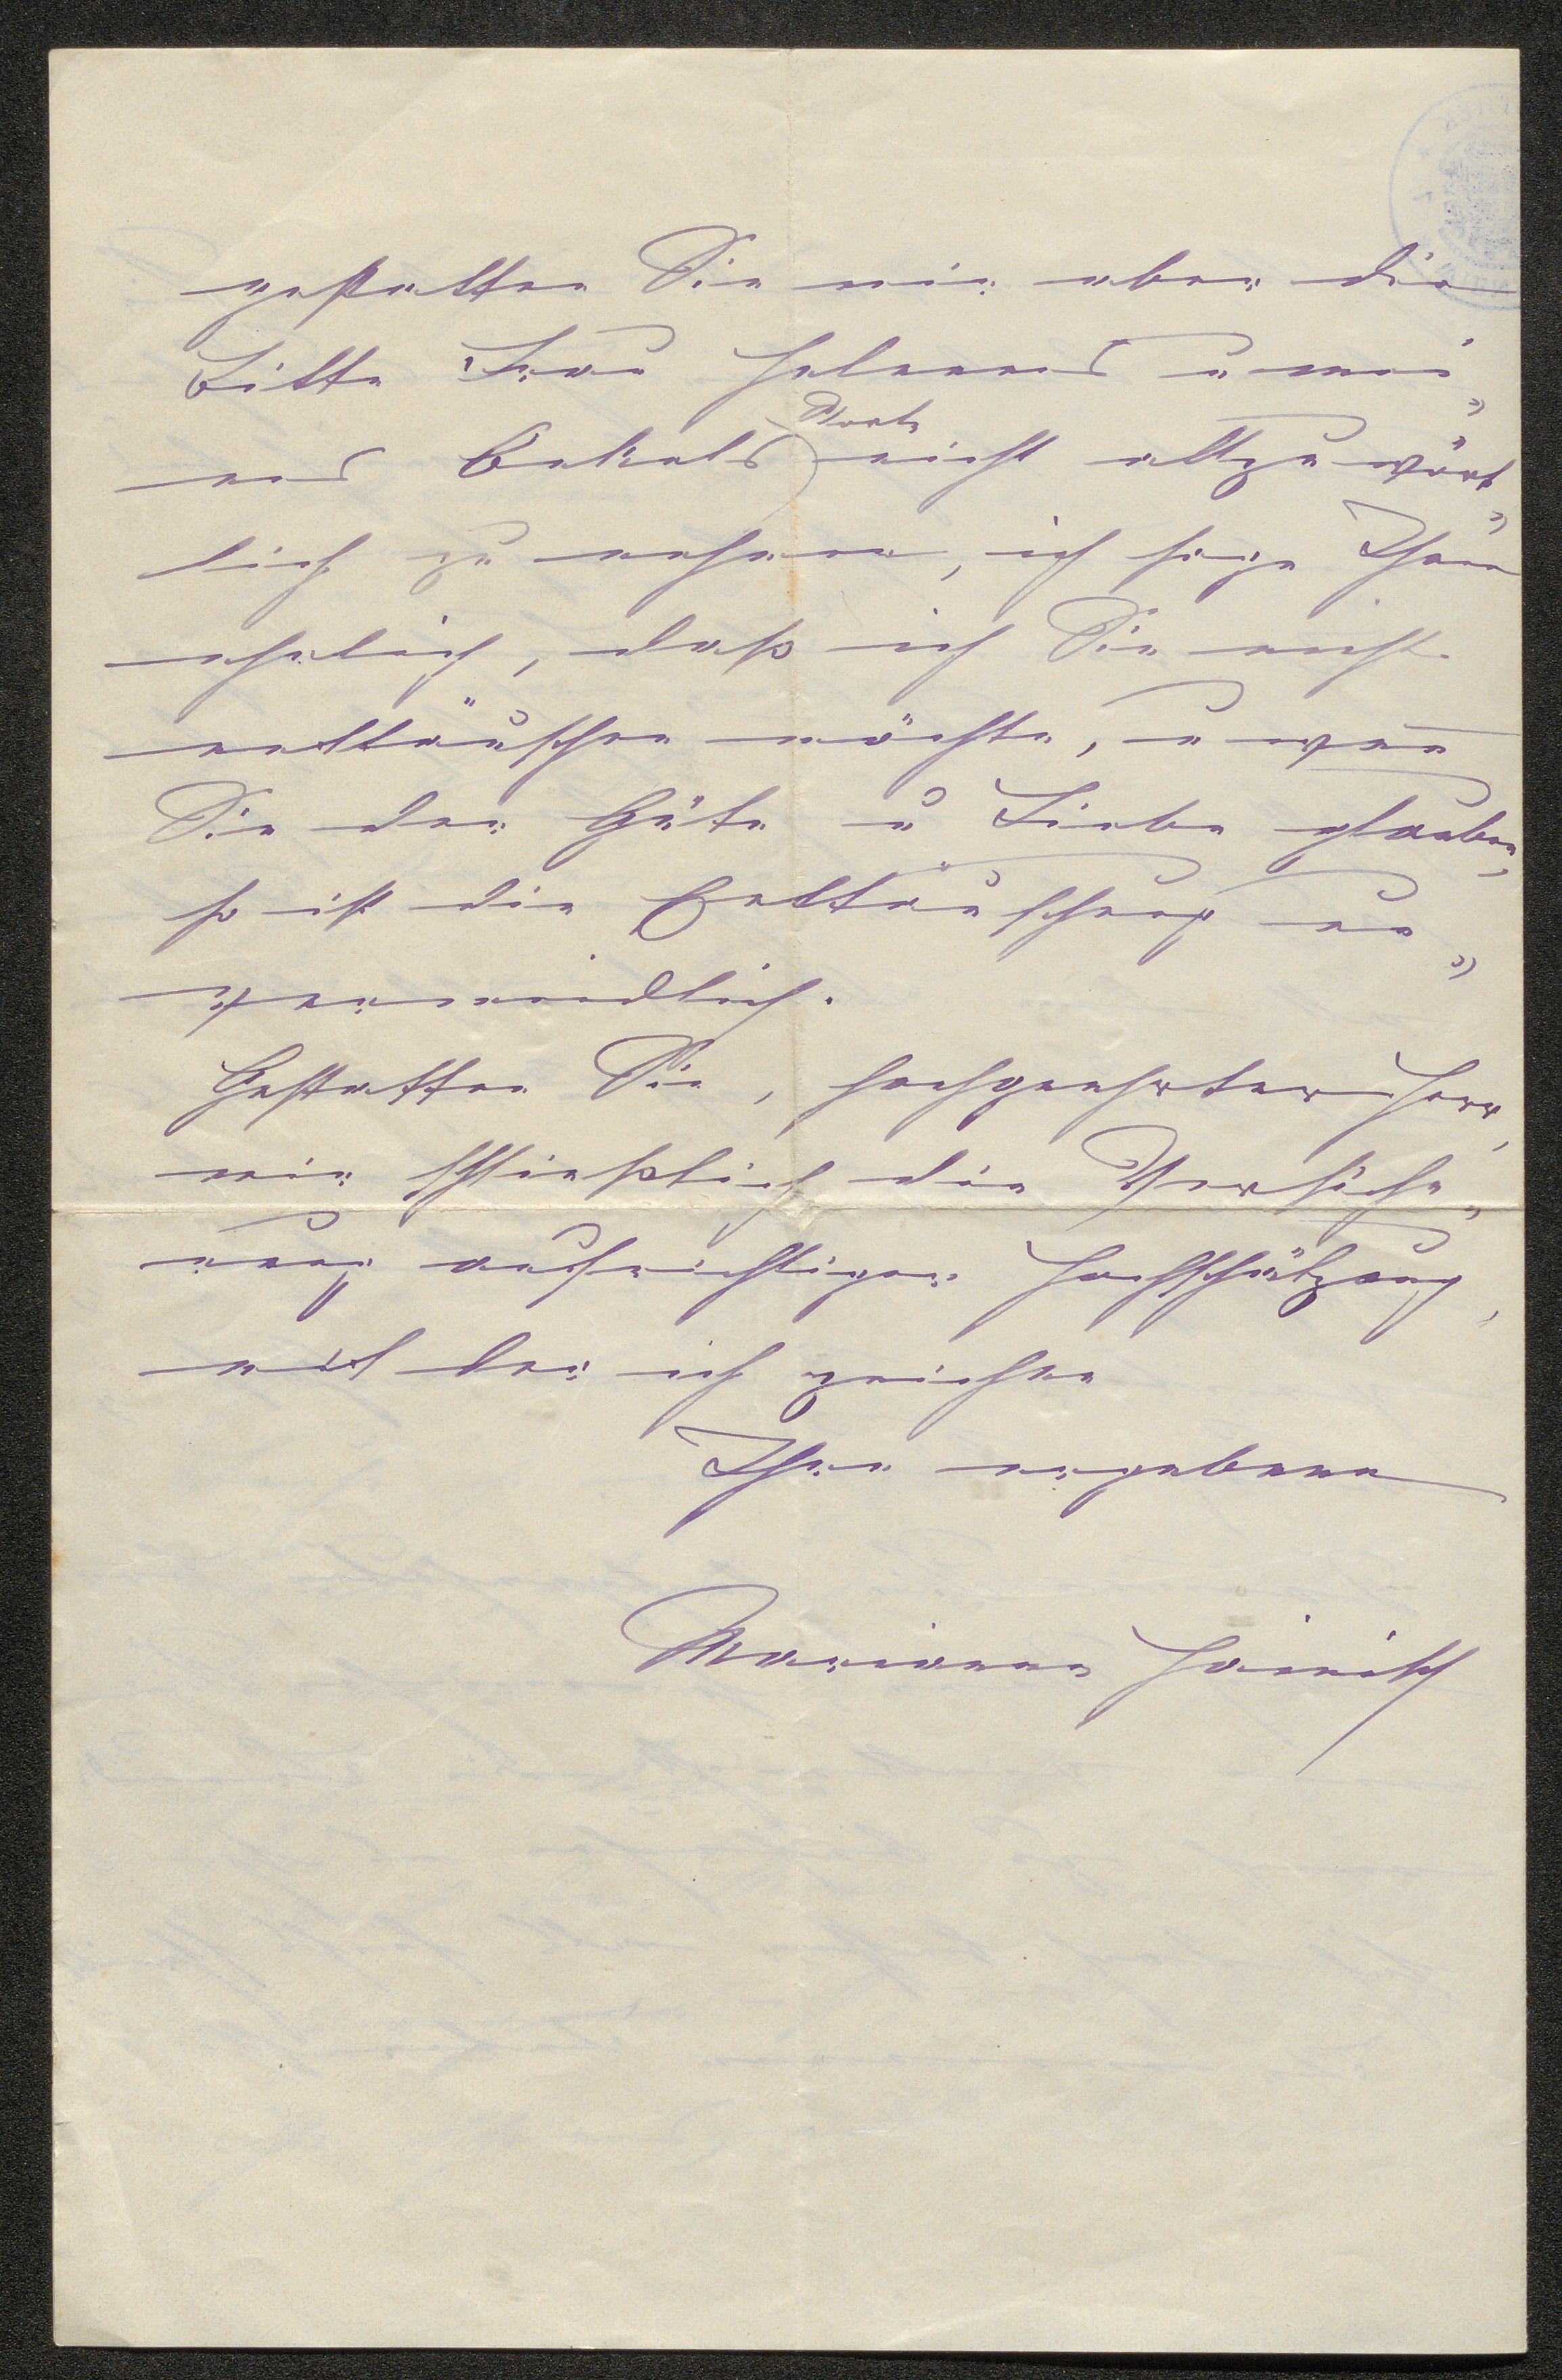 gestatten Sie mir aber die
Bitte Frau Helenens u mei„
nes Enkels Worte nicht allzu wört„
lich zu nehmen, ich sage Ihnen
ehrlich, daß ich Sie nicht
enttäuschen möchte, u wenn
Sie der Güte u Liebe glauben,
so ist die Enttäuschung un„
vermeidlich.
Gestatten Sie, hochgeehrter Herr,
mir schließlich die Versiche„
rung aufrichtiger Hochschätzung,
mit der ich zeichne
Ihre ergebene
Marianne Hainisch